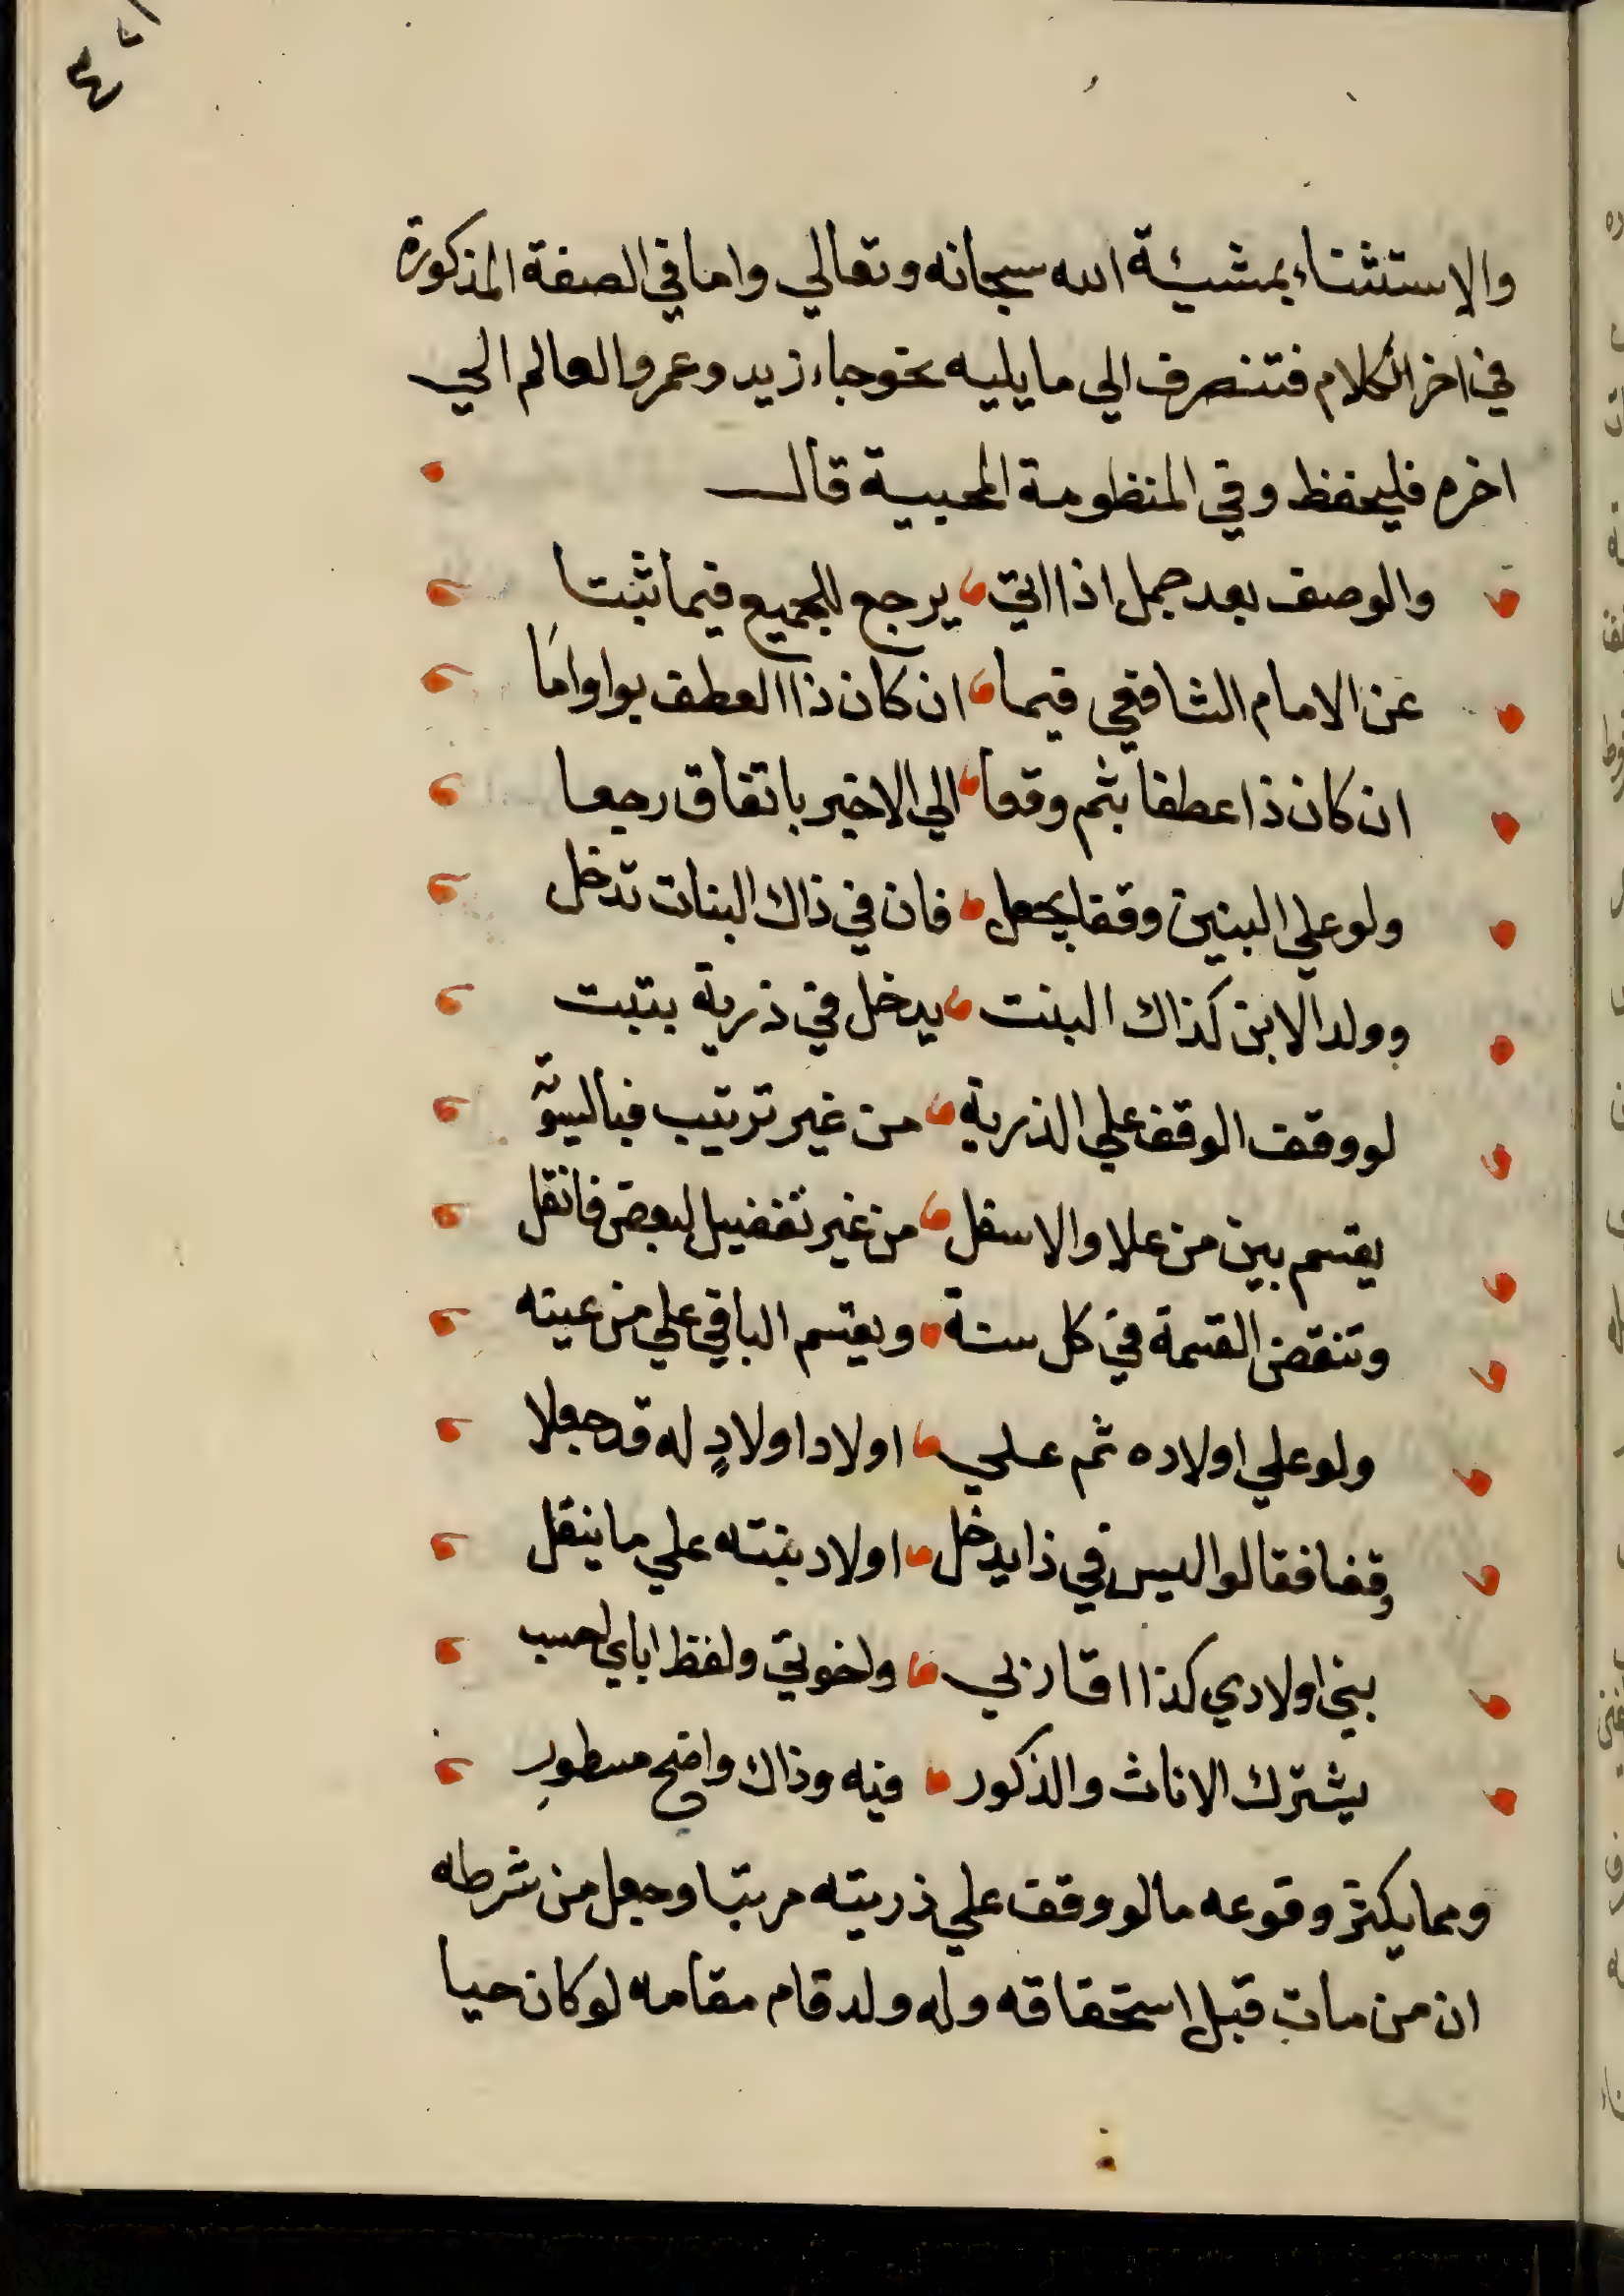 ٤
والاستثناء بمشيئة الله سبحانه وتعالي واما في الصفة المذكورة
في اخر الكلام فتنصرف الي ما يليه نحو جاء زيد وعمرو العالم الي
اخره فليحفظ وفي المنظومة المحبية قال
والوصف بعد جمل اذا اتي يرجع للجميع فيما ثبتا
عن الامام الشافعي فيما ان كان ذا العطف بواو اما
ان كان ذا عطفا بثم وقعا الي الاخير باتفاق رجعا
ولو علي البنين وقفا يجعل فان في ذاك البنات تدخل
وولد الابن كذاك البنت يدخل في ذرية بثبت
لو وقف الوقف علي الذرية من غير ترتيب فبالسوية
يقسم بين من علا والاسفل من غير تفضيل لبعض فانقل
وتنقض القسمة في كل سنة ويقسم الباقي علي من عينه
ولو علي اولاده ثم علي اولاد اولادٍ له قد جعلا
وقفا فقالوا ليس في ذا يدخل اولاد بنته علي ما ينقل
بني اولادي كذا اقاربي واخوتي ولفظ اباي احسب
يشترك الاناث والذكور فيه وذاك واضح مسطور
ومما يكثر وقوعه ما لو وقف علي ذريته مرتبا وجعل من شرطه
ان من مات قبل استحقاقه وله ولد قام مقامه لو كان حيا